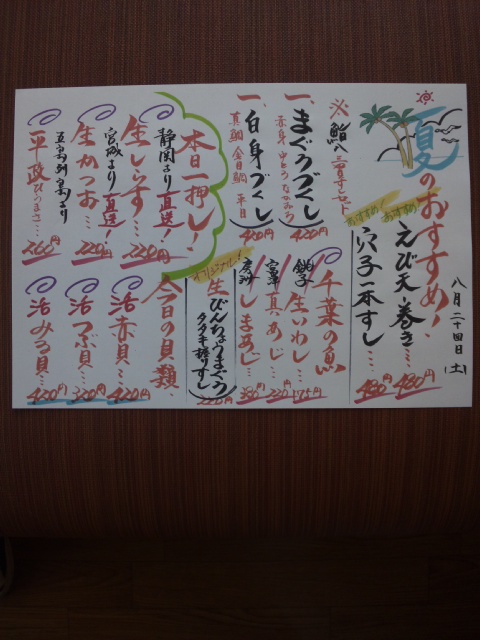 夏のおすすめ!
八月二十四日(土)
おすすめ
えび天巻き… 480円
おすすめ!
穴子一本すし… 480円
※鮨八 三昧セット
一、まぐろづくし 420円
赤身 中とろ
一、白身づくし 420円
真鯛 金目鯛 平目
千葉の魚
銚子 生いわし… 175円
真あじ…
しまあじ…
オリジナル!
生びんちょうまぐろ
タタキ握りすし 220円
本日一押し!
静岡より直送!
生しらす… 220円
宮城より直送!
生かつお… 220円
五島列島より
平政 ひらまさ… 260円
今日の貝類、
活赤貝… 420円
活つぶ貝… 320円
活みる貝… 420円